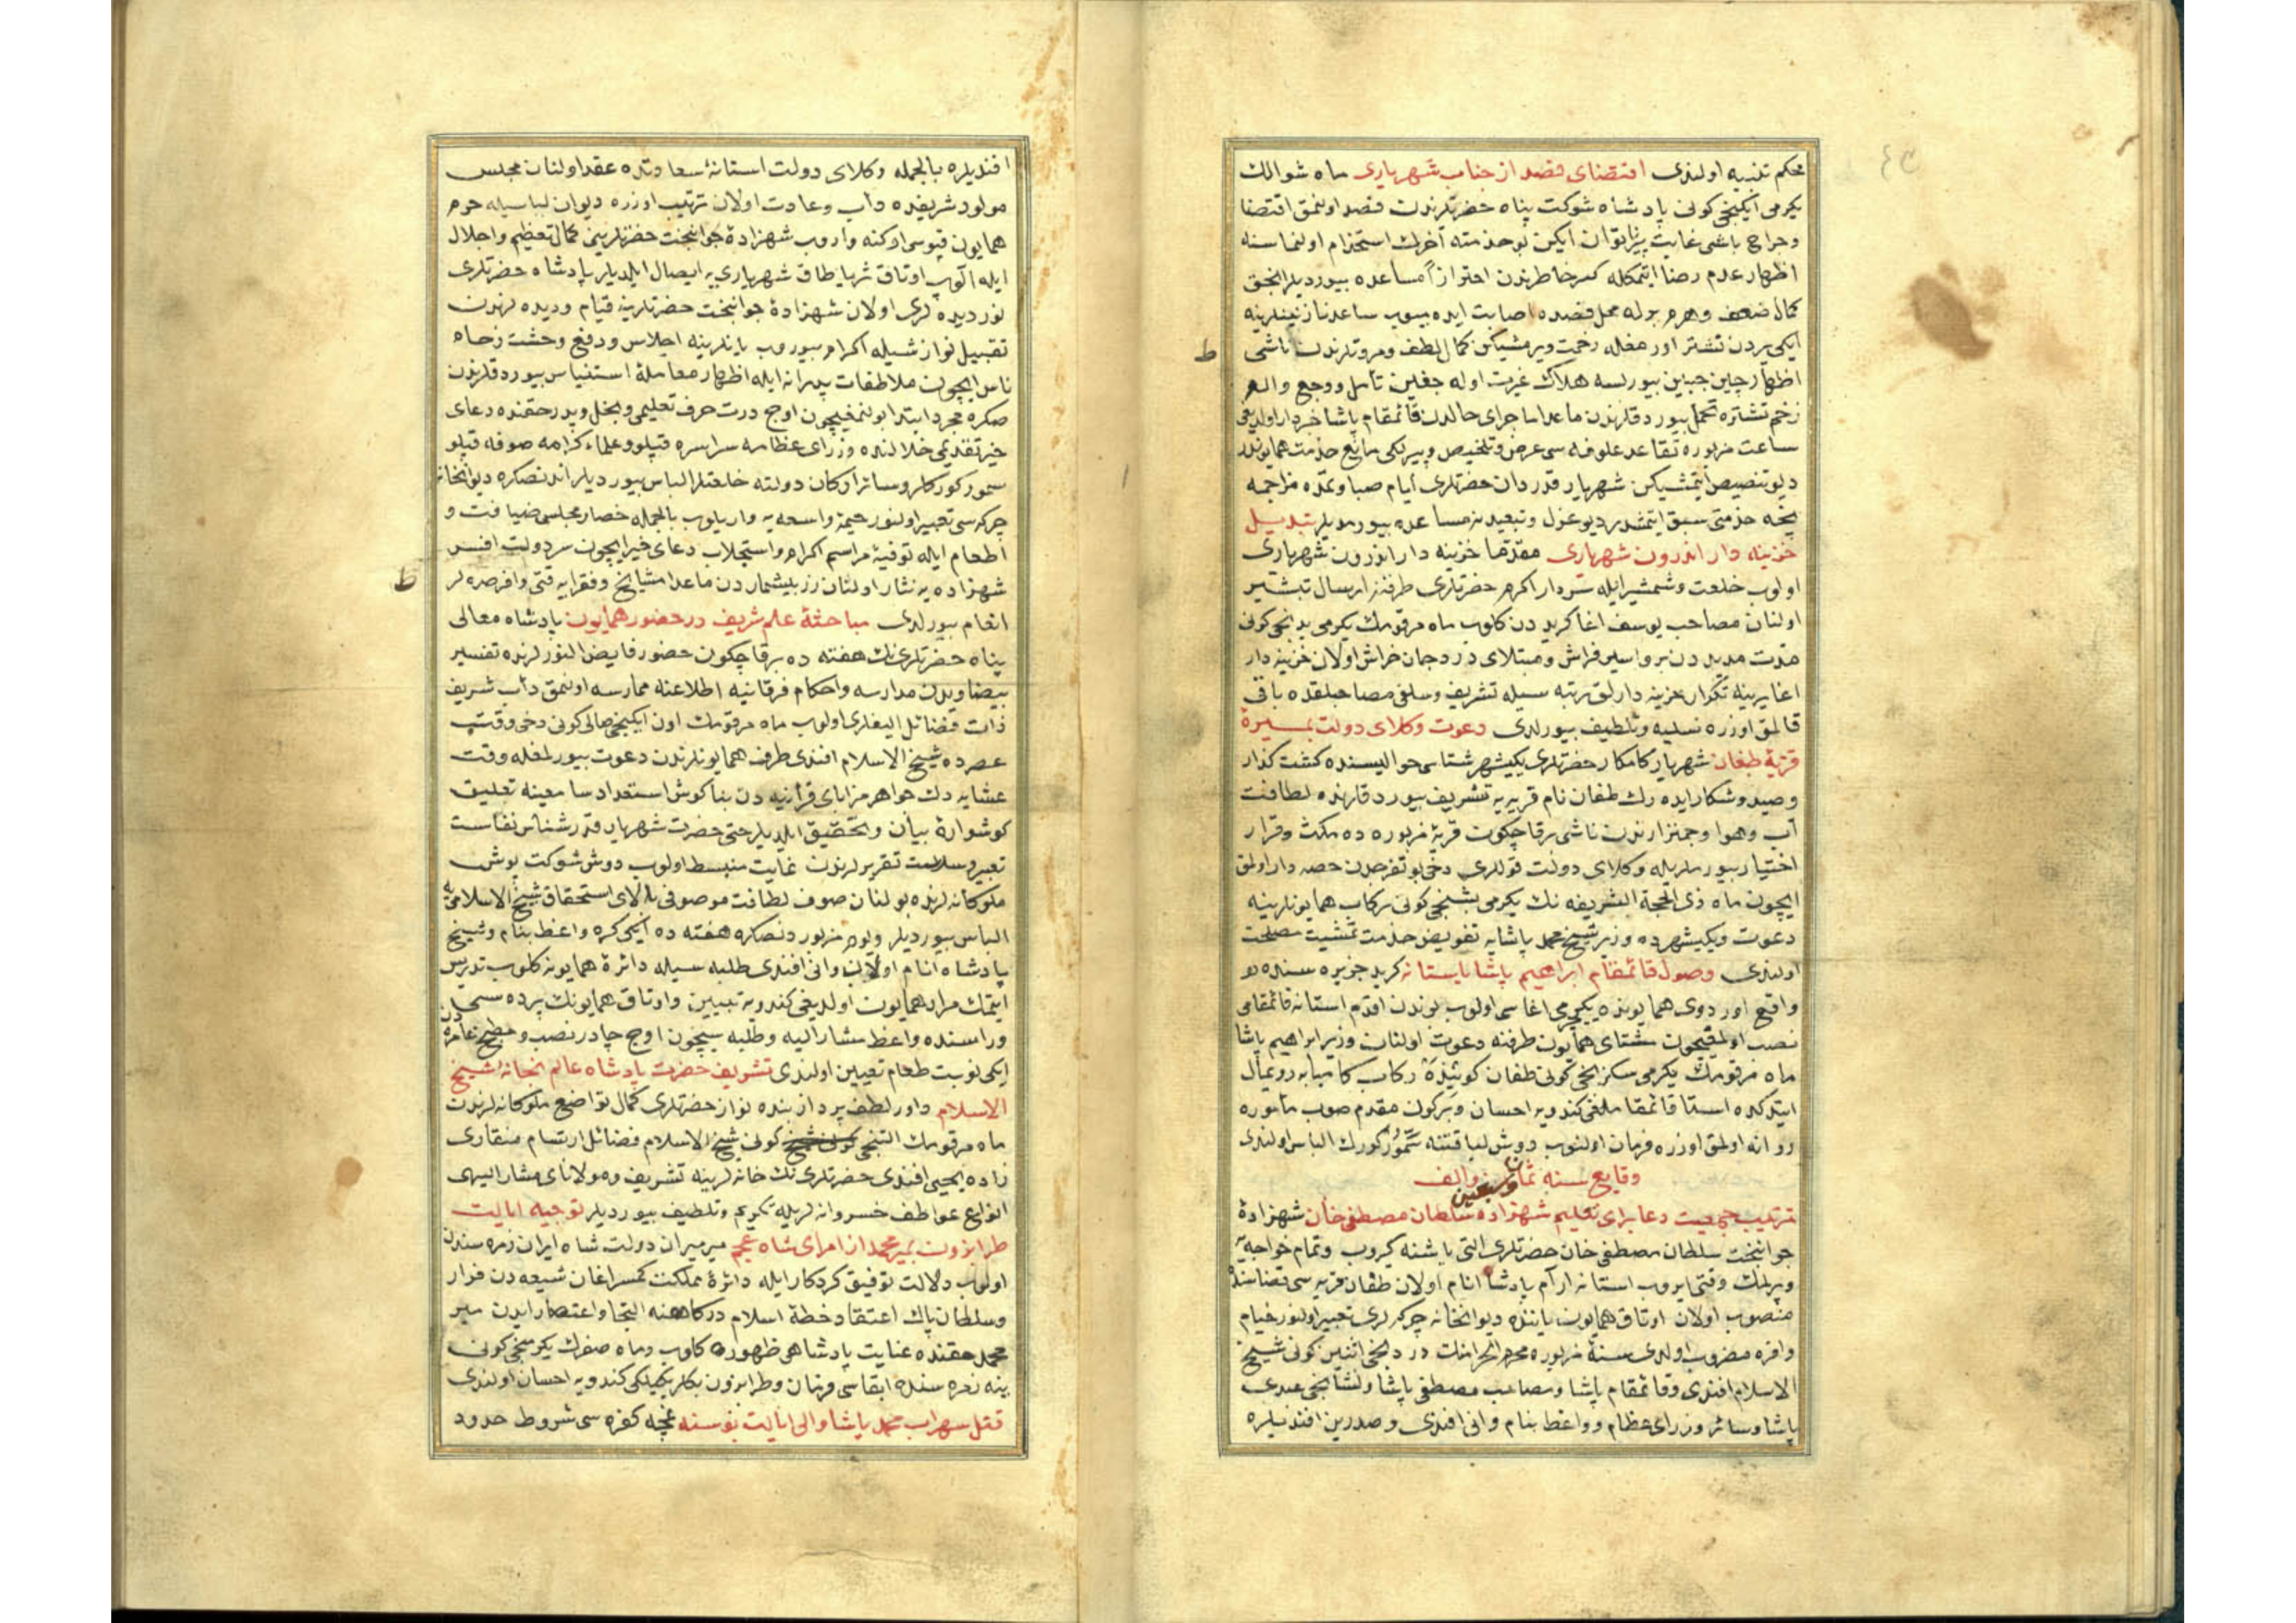 محكم تنبيه اولندى اقتضاى فصد از جناب شهريارى ماه شوالك
يكرمى ايكنجى كونى پادشاه شوكت پناه حضرتلرندن فصد اولنمق اقتضا
وجراح باشى غايت پير ناتوان ايكن بو خدمته آخرك استخدام اولنماسنه
اظهار عدم رضا ايتمكله كسر خاطرندن احترازاً مساعده بيورديلر انجق
كمال ضعف وهرم بوله محل فصده اصابت ايده ميوب ساعد نازنينلرينه
ايكى يردن نشتر اورمغله زخمت ويرمشيكن كمال لطف ومروتلرندن ناشى
اظهار چين جبين بيورلسه هلاك غيرت اوله جغين تأمل ووجع والم
زخم نشتره تحمل بيوردقلرندن ماعدا ماجراى حالدن قائمقام پاشا خبردار اولديغى
ساعت مزبوره تقاعد علوفه سى عرض وتلخيص وپيرلكى مانع خدمت همايوندر
ديو تنصيص ايتمشيكن شهريار قدردان حضرتلرى ايام صباوتمده مزاجمه
نيجه خدمتى سبق ايتمشدر ديو عزل وتبعيدينه مساعده بيورمديلر تبديل
خزينه دار اندرون شهريارى مقدما خزينه دار اندرون شهريارى
اولوب خلعت وشمشير ايله سردار اكرم حضرتلرى طرفنه ارسال تبشير
اولنان مصاحب يوسف اغا كريددن كلوب ماه مرقومك يكرمى يدنجى كونى
مدت مديددن برو اسير فراش ومبتلاى درد جان خراش اولان خزينه دار
اغا يرينه تكرار خزينه دارلق رتبه سيله تشريف وسلفى مصاحبلقده باقى
قالمق اوزره تسليه وتلطيف بيورلدى دعوت وكلاى دولت بمسيرهٔ
قريهٔ طفغان شهريار كامكار حضرتلرى يكيشهر شتاسى حواليسنده كشت كذار
وصيد وشكار ايده رك طفغان نام قريه يه تشريف بيوردقلرنده لطافت
آب وهوا وچمنزارندن ناشى برقاچ كون قريهٔ مزبوره ده مكث وقرار
اختيار بيورملريله وكلاى دولت قوللرى دخى بو تفرجدن حصه دار اولمق
ايچون ماه ذى الحجة الشريفه نك يكرمى بشنجى كونى ركاب همايونلرينه
دعوت ويكيشهرده وزير شيخ محمد پاشايه تفويض خدمت تمشيت مصلحت
اولندى وصول قائمقام ابراهيم پاشا باستانه كريد جزيره سنده
واقع اوردوى همايونده يكيچرى اغاسى اولوب بوندن اقدم استانه قائمقامى
نصب اولمقيچون شتاى همايون طرفنه دعوت اولنان وزير ابراهيم پاشا
ماه مرقومك يكرمى سكزنجى كونى طفغان كوينده ركاب كاميابه رويمال
ايتدكده استانه قائمقاملغى كندويه احسان وبركون مقدم صوب مأموره
روانه اولمق اوزره فرمان اولنوب دوش لياقتنه سمور كورك الباس اولندى
وقايع سنه ثمان وسبعين والف
ترتيب جمعيت دعا براى تعليم شهزاده سلطان مصطفى خان شهزادهٔ
جوانبخت سلطان مصطفى خان حضرتلرى التى ياشنه كيروب وتمام خواجه يه
ويرلمك وقتى ايروب استانه ارآم پادشاه انام اولان طفغان قريه سى فضاسنده
منصوب اولان اوتاق همايون ياننده ديوانخانه چركه لرى تعبير اولنور خيام
وافره مضروب اولدى سنهٔ مزبوره محرم الحرامنك دردنجى اثنين كونى شيخ
الاسلام افندى وقائمقام پاشا ومصاحب مصطفى پاشا ونشانجى عبدى
پاشا وسائر وزراى عظام وواعظ بنام وانى افندى وصدرين افنديلره
افنديلره بالجمله وكلاى دولت استانهٔ سعادتده عقد اولنان مجلس
مولود شريفده دأب وعادت اولان ترتيب اوزره ديوان لباسيله حرم
همايون قپوسى اوكنه واروب شهزادهٔ جوانبخت حضرتلرينى كمال تعظيم واجلال
ايله الوب اوتاق ثريا طاق شهريارى يه ايصال ايلديلر پادشاه حضرتلرى
نور ديده لرى اولان شهزادهٔ جوانبخت حضرتلرينه قيام وديده لرندن
تقبيل نوازشيله اكرام بيوروب يانلرينه اجلاس ودفع وحشت زحام
ناس ايچون ملاطفات پدرانه ايله اظهار معاملهٔ استيناس بيوردقلرندن
صكره مجرد ابتدا بولنمغيچون اوج درت حرف تعليمى وپدر حقنده دعاى
خير تقديمى خلالنده وزراى عظامه سراسره قپلو وعلماء كرامه صوفه قپلو
سمور كوركلر وسائر اركان دولته خلعتلر الباس بيورديلر اندنصكره ديوانخانه
چركه سى تعبير اولنور خيمهٔ واسعه يه واريلوب بالجمله حضار مجلسى ضيافت و
اطعام ايله توفيهٔ مراسم اكرام واستجلاب دعاى خير ايچون سردولت افسر
شهزاده يه نثار اولنان زر بيشماردن ماعدا مشايخ وفقرايه قتى وافر صره لر
انعام بيورلدى مباحثهٔ علم شريف در حضور همايون پادشاه معالى
پناه حضرتلرى نك هفته ده برقاچ كون حضور فايض النورلرنده تفسير
بيضاويدن مدارسه واحكام فرقانيه اطلاعنه ممارسه اولنمق دأب شريف
ذات فضائل اليفلرى اولوب ماه مرقومك اون ايكنجى صالى كونى دخى وقت
عصرده شيخ الاسلام افندى طرف همايونلرندن دعوت بيورلمغله وقت
عشايه دك جواهر مزاياى قرآنيه دن بناكوش استعداد سامعينه تعليق
كوشوارهٔ بيان وتحقيق ايلديلر حتى حضرت شهريار قدرشناس نفاست
تعبير وسلاست تقريرلرندن غايت منبسط اولوب دوش شوكت پوش
ملوكانه لرنده بولنان صوف لطافت موصوفى بالاى استحقاق شيخ الاسلامى يه
الباس بيورديلر ويوم مزبوردنصكره هفته ده ايكى كره واعظ بنام وشيخ
پادشاه انام اولان وانى افندى طلبه سيله دائرهٔ همايونه كلوب تدريس
ايتمك مراد همايون اولديغى كندويه تبيين واوتاق همايونك پرده سى
وراسنده واعظ مشاراليه وطلبه سيچون اوج چادر نصب ومطبخ عامره دن
ايكى نوبت طعام تعيين اولندى تشريف حضرت پادشاه عالم بخانهٔ شيخ
الاسلام داور لطف پرداز بنده نواز حضرتلرى كمال تواضع ملوكانه لرندن
ماه مرقومك التنجى كونى شيخ الاسلام فضائل ارتسام منقارى
زاده يحيى افندى حضرتلرى نك خانه لرينه تشريف ومولاناى مشاراليهى
انواع عواطف خسروانه لريله تكريم وتلطيف بيورديلر توجيه ايالت
طرابزون بمير محمد از امراى شاه عجم ميرميران دولت شاه ايران زمره سندن
اولوب دلالت توفيق كردكار ايله دائرهٔ مملكت شيعه دن فرار
وسلطان پاك اعتقاد خطهٔ اسلام دركاهنه التجا واعتصار ايدن مير
محمد حقنده عنايت پادشاهى ظهوره كلوب وماه صفرك يكرمنجى كونى
ينه زمره سنده ابقاسى فرمان وطرابزون بكلربكيلكى كندويه احسان اولندى
قتل سهراب محمد پاشا والى ايالت بوسنه غنجه كفره سى شروط حدود